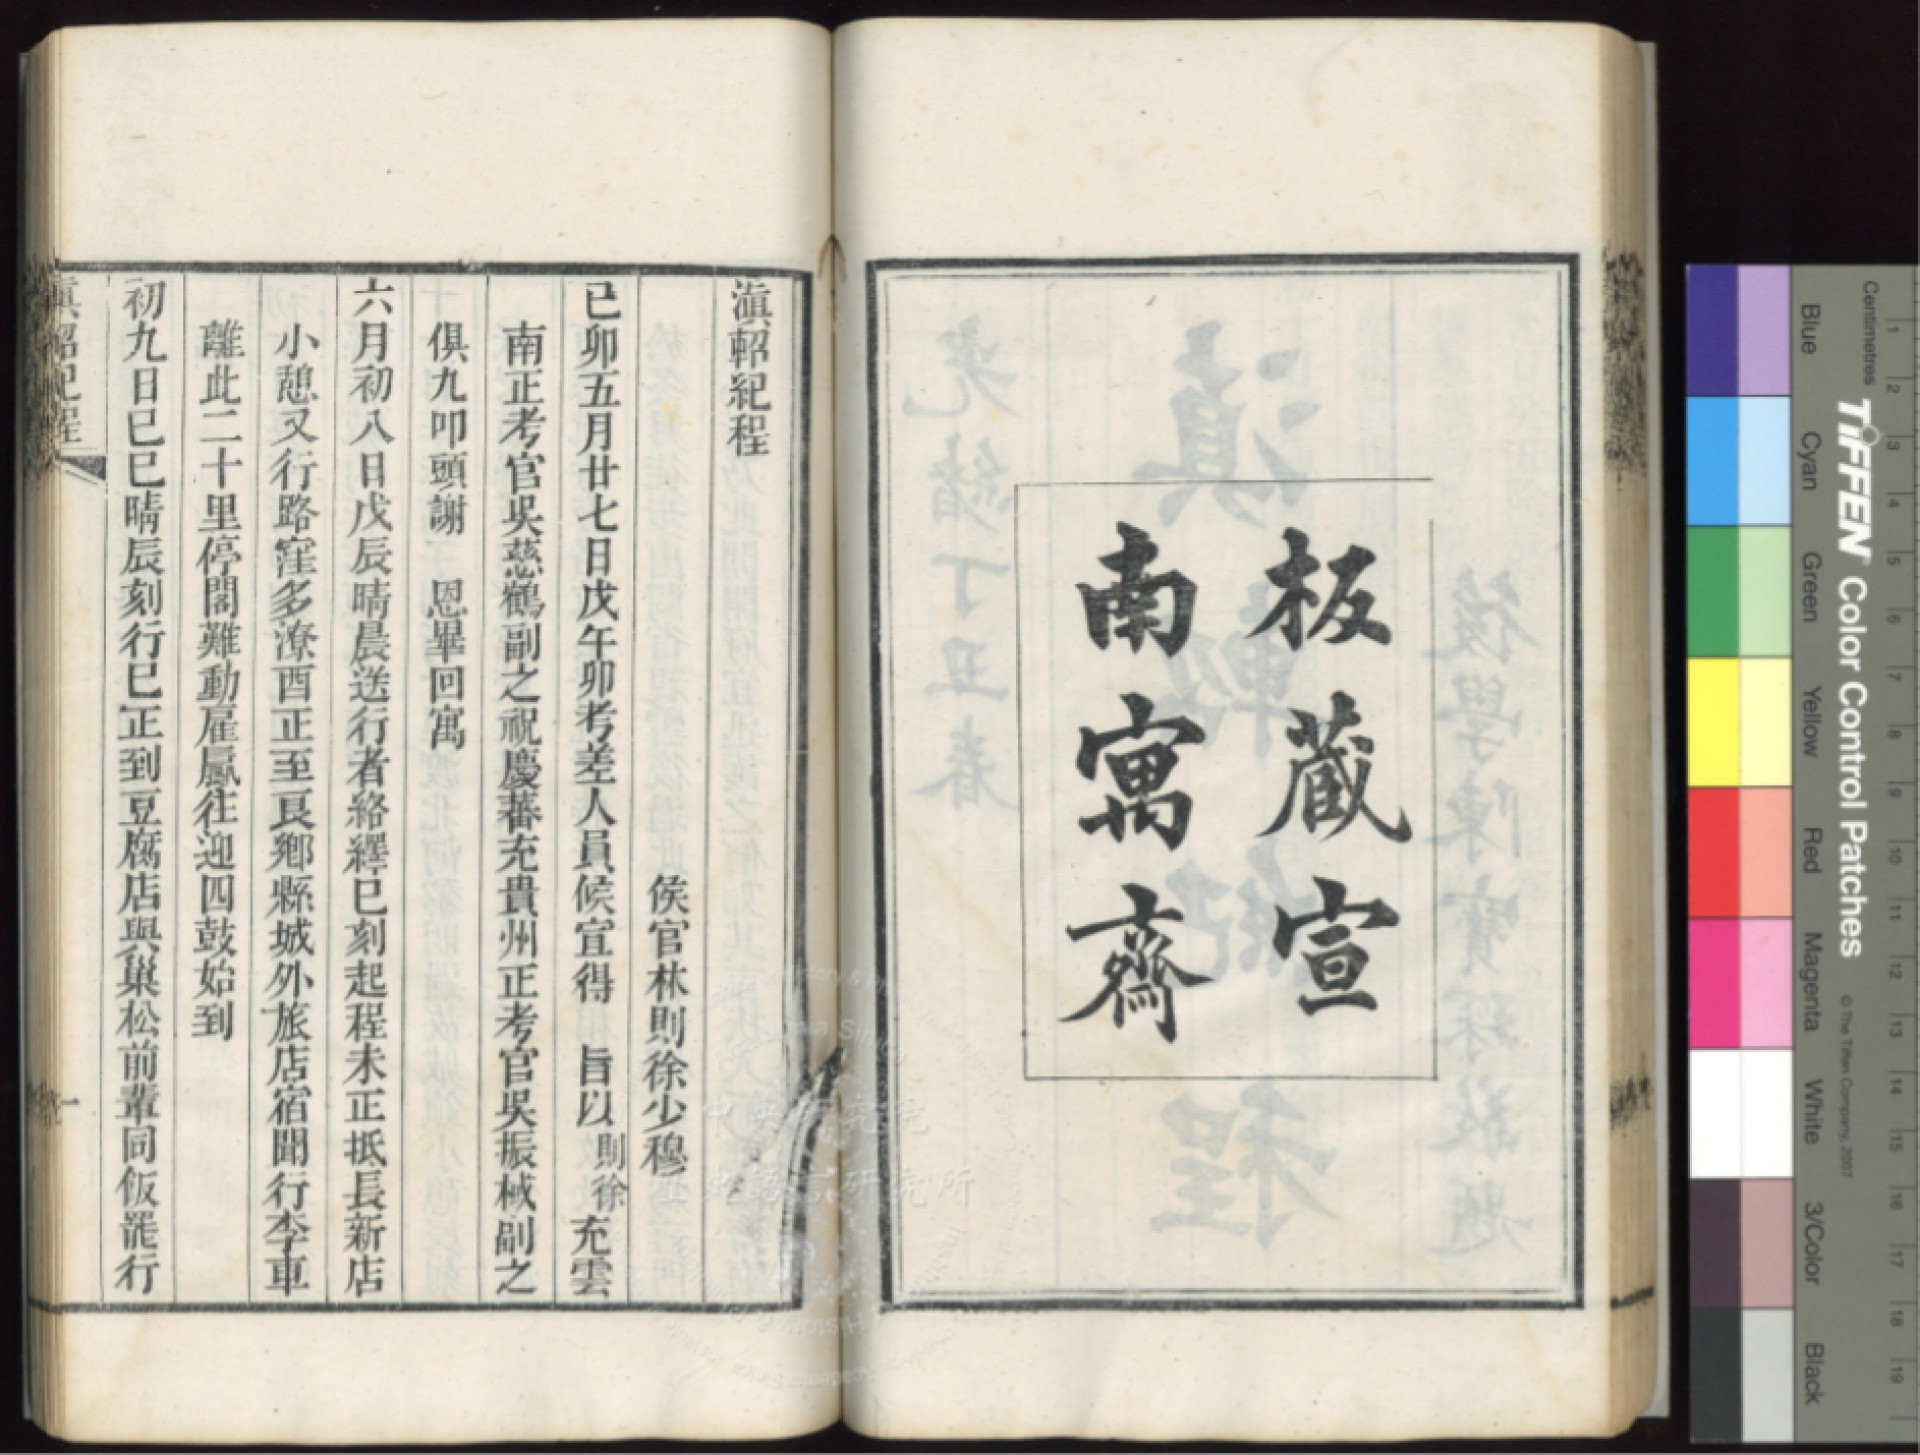 板藏宣
南寓齋
滇軺紀程
侯官林則徐少穆
己卯五月廿七日戊午卯考差人員候宣得　旨以則徐充雲
南正考官吳慈鶴副之祝慶蕃充貴州正考官吳振棫副之
俱九叩頭謝　恩畢回寓
六月初八日戊辰晴晨送行者絡繹巳刻起程未正抵長新店
小憩又行路窪多潦酉正至良鄉縣城外旅店宿聞行李車
離此二十里停閣難動雇臝往迎四鼓始到
初九日己巳晴辰刻行巳正到豆腐店與巢松前輩同飯罷行
滇軺紀程
一
Centimetres
TIFFEN Color Control Patches
© The Tiffen Company, 2007
Blue
Cyan
Green
Yellow
Red
Magenta
White
3/Color
Black
1
2
3
4
5
6
7
8
9
10
11
12
13
14
15
16
17
18
19